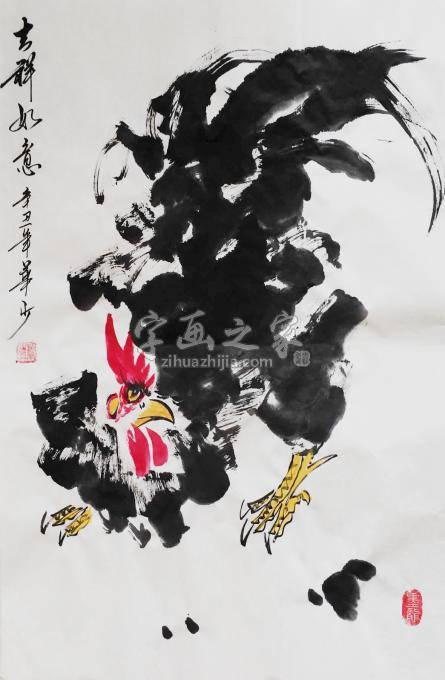 吉祥如意
辛丑年
字画之家
zihuazhijia.com